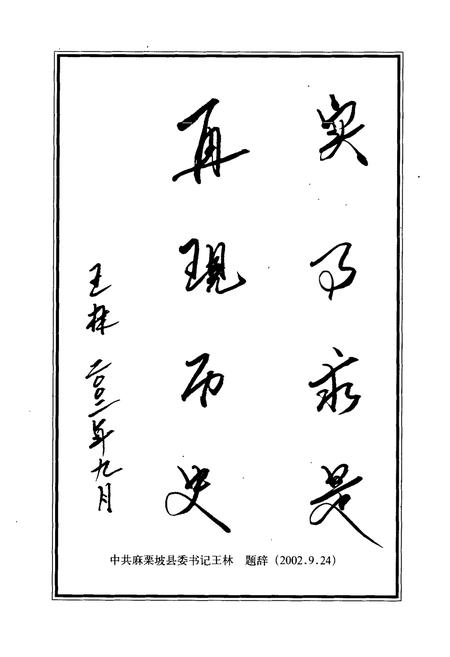 实事求是
再现历史
王林 二〇〇二年九月
中共麻栗坡县委书记王林 题辞（2002.9.24）